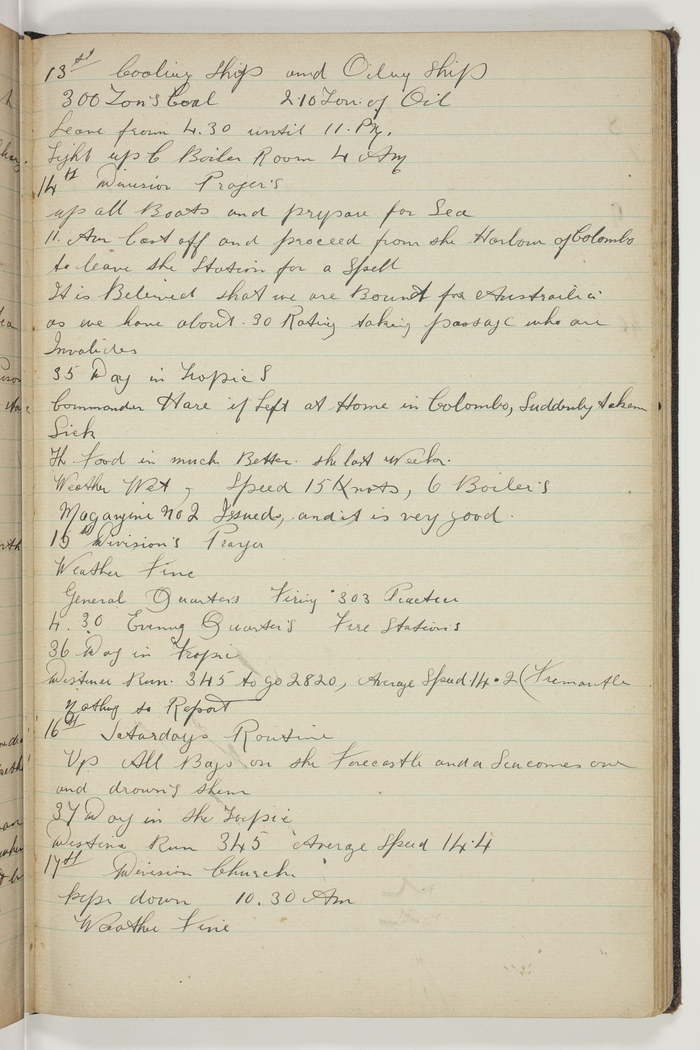 13th Cooling Ship and Oiling Ship
300 Ton's Coal 210 Ton. of Oil
Leave from 4.30 until 11. PM.
Light up 6 Boiler Room 4 AM
14th Division Prayer's
up all Boats and prepare for Sea
11. Am Cast off and proceed from the Harbour of Colombo
to leave the Station for a Spell
It is Believed that we are Bound for Austrailia
as we have about 30 Rating taking passage who are
Invalides
35 Day in Tropic S
Commander Hare if Left at Home in Colombo, Suddenly taken
Sick
Th. Food in much Better. the last Week.
Weather Wet, Speed 15 Knots, 6 Boiler's
Magazine No 2 Issued, and it is very good.
15th Division's Prayer
Weather Fine
General Quarters Firing .303 Practice
4.30 Evening Quarter's Fire Station's
36 Day in Tropic
Distance Run. 345 to go 2820, Average Speed 14.2 (Fremantle
Nothing to Report
16th Saturdays Routine
Up All Bags on the Forecastle and a Sea comes over
and drown's them
37 Day in the Tropic
Distance Run 345 Average Speed 14.4
17th Division Church.
Pipe down 10.30 Am
Weather Fine